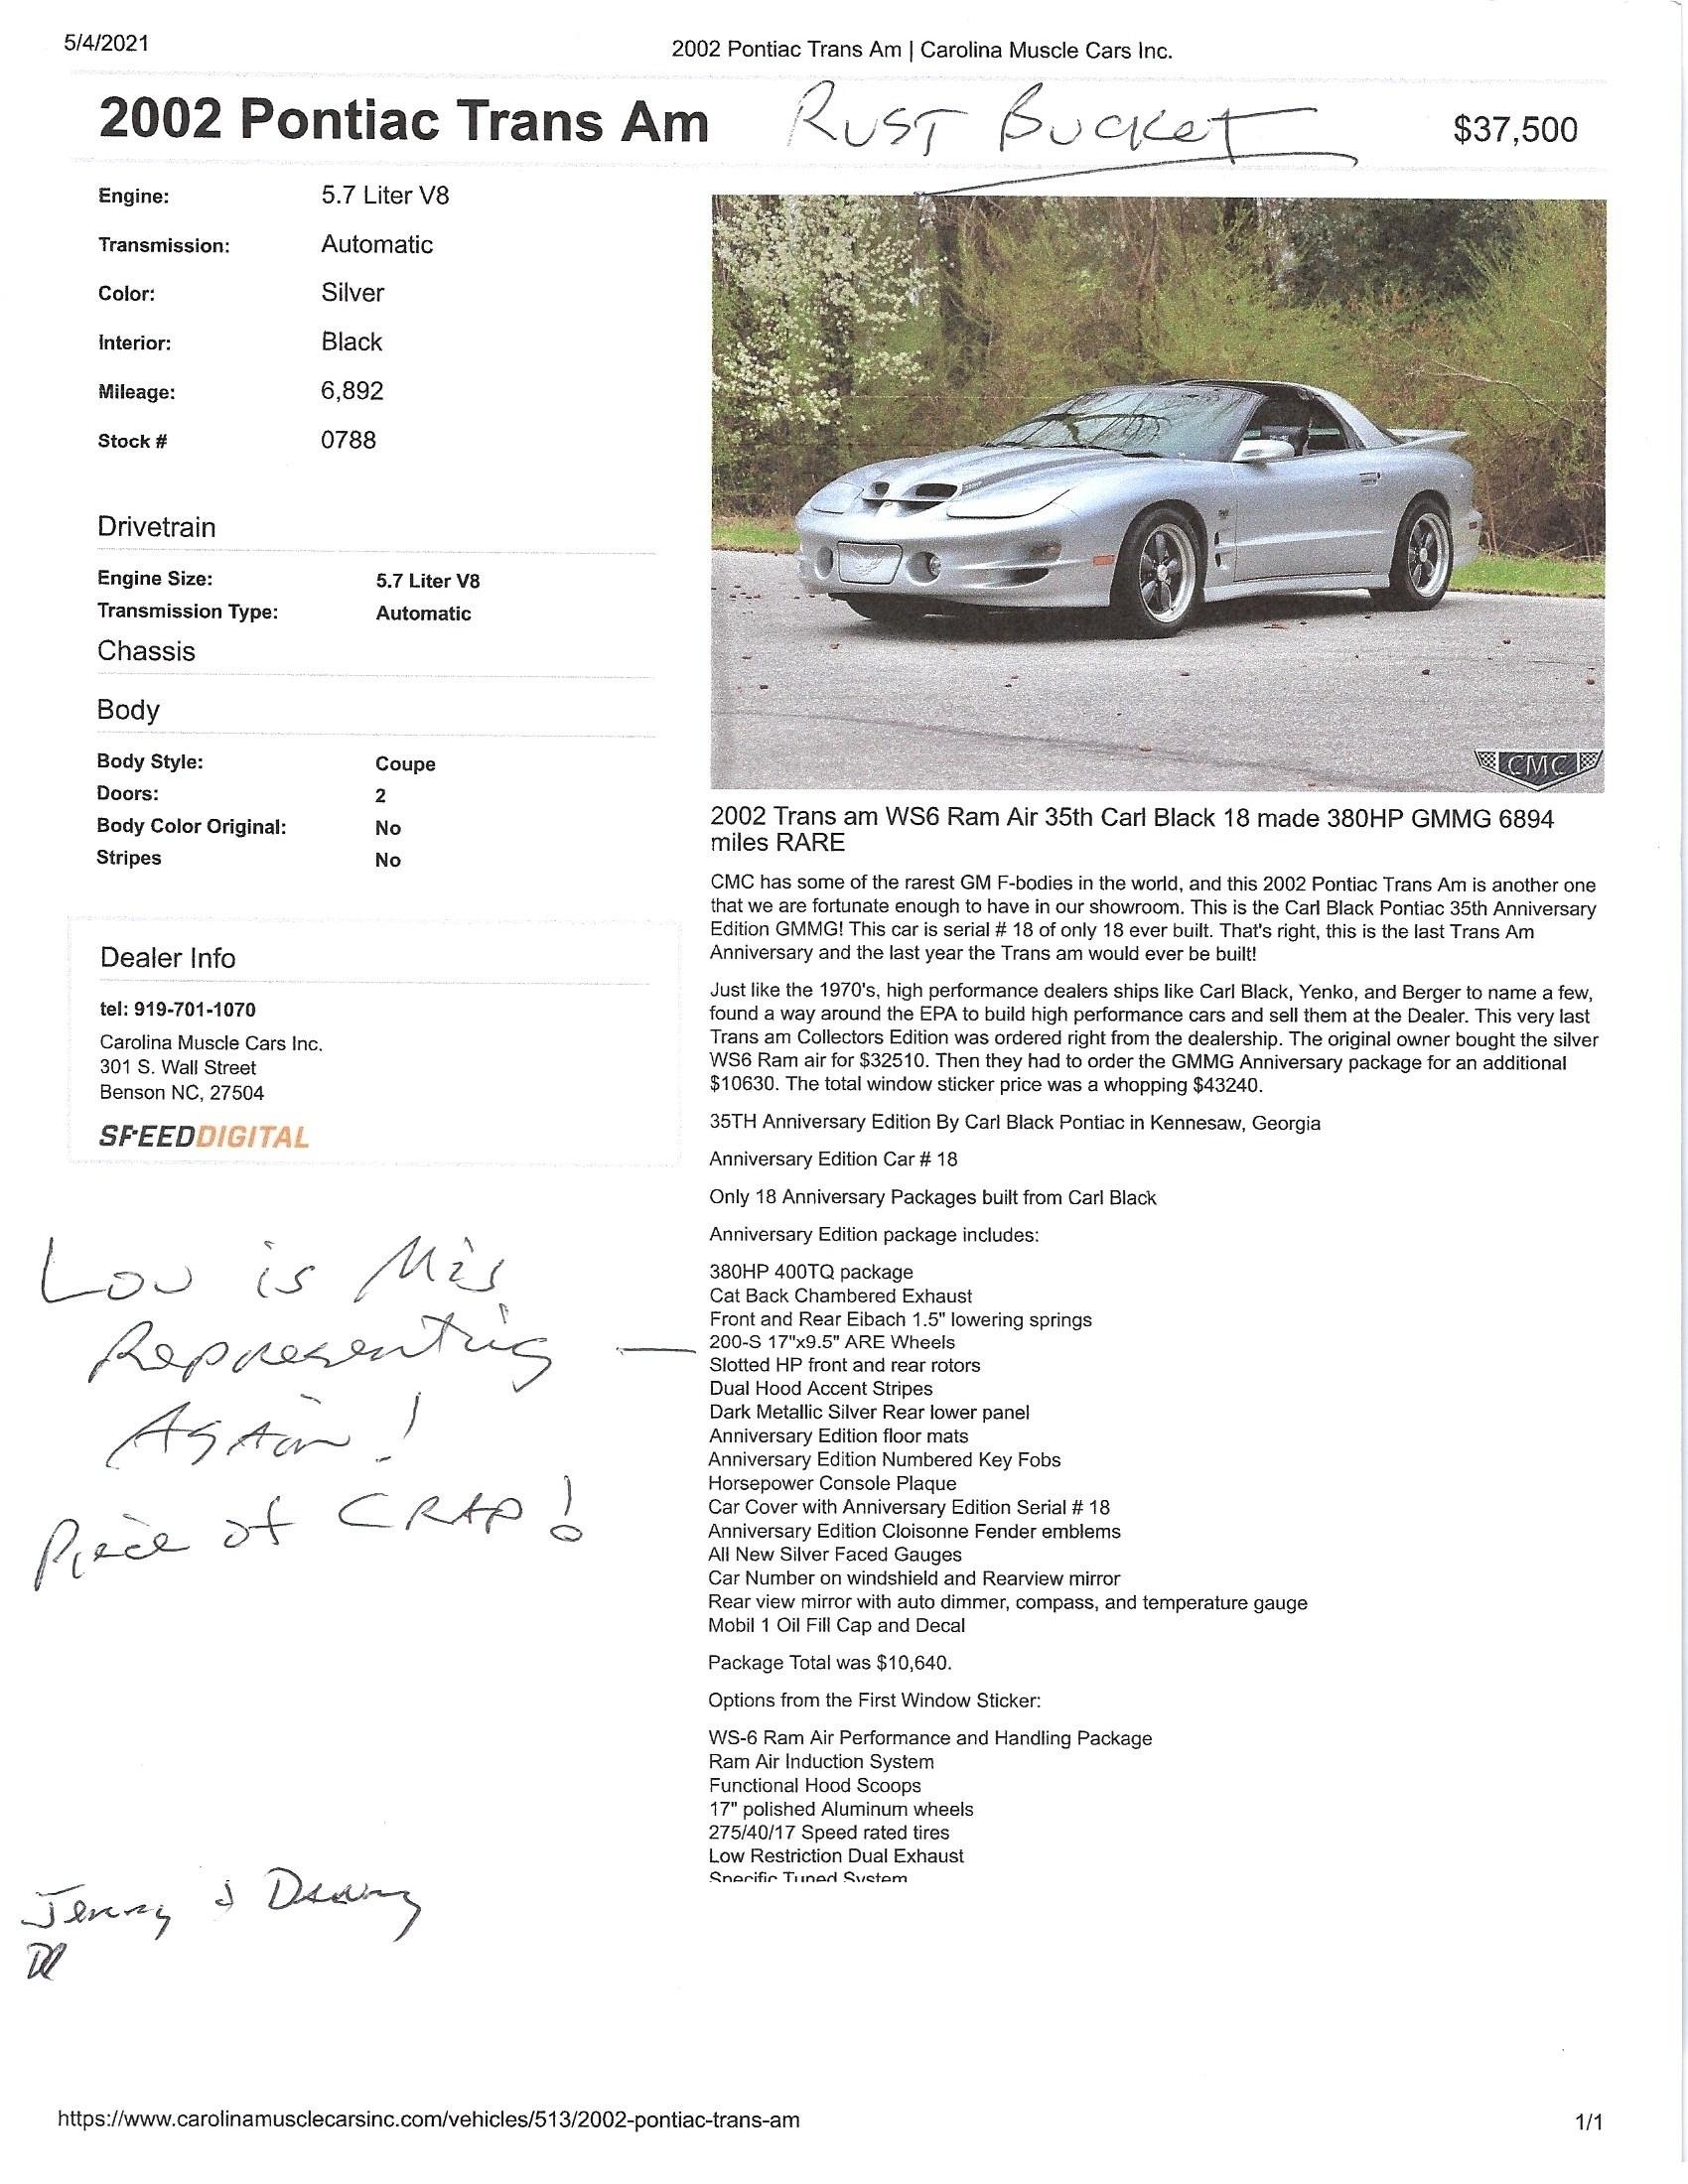 5/4/2021
2002 Pontiac Trans Am | Carolina Muscle Cars Inc.
2002 Pontiac Trans Am
RUST BUCKET
$37,500
Engine: 5.7 Liter V8
Transmission: Automatic
Color: Silver
Interior: Black
Mileage: 6,892
Stock # 0788
Drivetrain
Engine Size: 5.7 Liter V8
Transmission Type: Automatic
Chassis
Body
Body Style: Coupe
Doors: 2
Body Color Original: No
Stripes No
Dealer Info
tel: 919-701-1070
Carolina Muscle Cars Inc.
301 S. Wall Street
Benson NC, 27504
SPEEDDIGITAL
Lou is Mis
Representing —
Again!
Piece of CRAP!
Jenny & Danny
CMC
2002 Trans am WS6 Ram Air 35th Carl Black 18 made 380HP GMMG 6894
miles RARE
CMC has some of the rarest GM F-bodies in the world, and this 2002 Pontiac Trans Am is another one
that we are fortunate enough to have in our showroom. This is the Carl Black Pontiac 35th Anniversary
Edition GMMG! This car is serial # 18 of only 18 ever built. That's right, this is the last Trans Am
Anniversary and the last year the Trans am would ever be built!
Just like the 1970's, high performance dealers ships like Carl Black, Yenko, and Berger to name a few,
found a way around the EPA to build high performance cars and sell them at the Dealer. This very last
Trans am Collectors Edition was ordered right from the dealership. The original owner bought the silver
WS6 Ram air for $32510. Then they had to order the GMMG Anniversary package for an additional
$10630. The total window sticker price was a whopping $43240.
35TH Anniversary Edition By Carl Black Pontiac in Kennesaw, Georgia
Anniversary Edition Car # 18
Only 18 Anniversary Packages built from Carl Black
Anniversary Edition package includes:
380HP 400TQ package
Cat Back Chambered Exhaust
Front and Rear Eibach 1.5" lowering springs
200-S 17"x9.5" ARE Wheels
Slotted HP front and rear rotors
Dual Hood Accent Stripes
Dark Metallic Silver Rear lower panel
Anniversary Edition floor mats
Anniversary Edition Numbered Key Fobs
Horsepower Console Plaque
Car Cover with Anniversary Edition Serial # 18
Anniversary Edition Cloisonne Fender emblems
All New Silver Faced Gauges
Car Number on windshield and Rearview mirror
Rear view mirror with auto dimmer, compass, and temperature gauge
Mobil 1 Oil Fill Cap and Decal
Package Total was $10,640.
Options from the First Window Sticker:
WS-6 Ram Air Performance and Handling Package
Ram Air Induction System
Functional Hood Scoops
17" polished Aluminum wheels
275/40/17 Speed rated tires
Low Restriction Dual Exhaust
Specific Tuned System
https://www.carolinamusclecarsinc.com/vehicles/513/2002-pontiac-trans-am
1/1